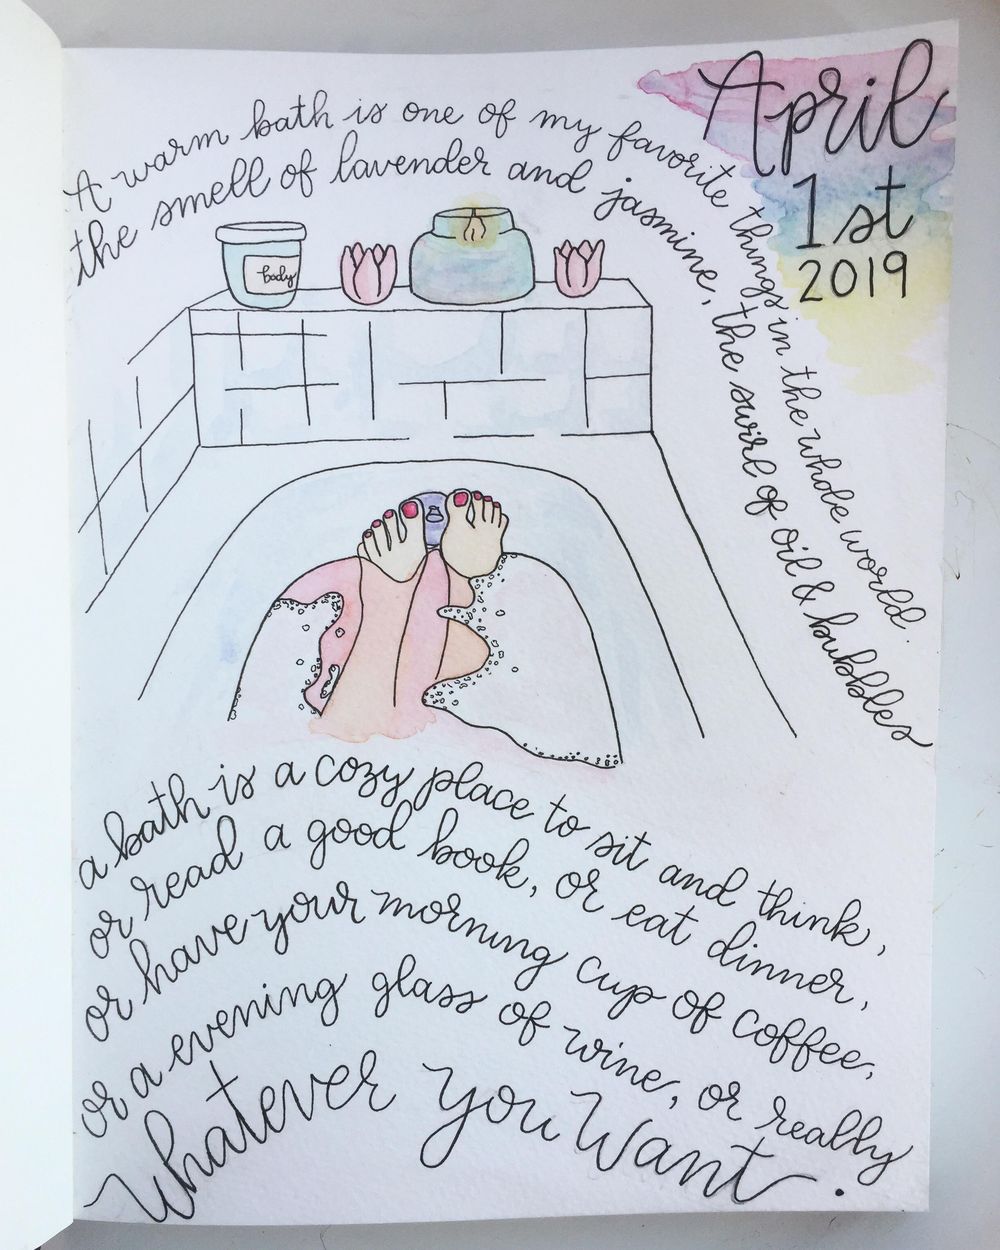 April
1st
2019
A warm bath is one of my favorite things in the whole world.
the smell of lavender and jasmine, the swirl of oil & bubbles
body
a bath is a cozy place to sit and think,
or read a good book, or eat dinner,
or have your morning cup of coffee,
or a evening glass of wine, or really
Whatever you Want.